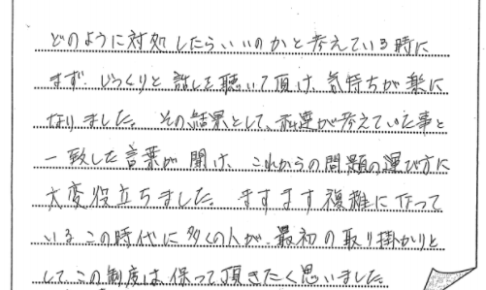 どのように対処したらいいのかと考えている時に
まず、じっくりと話しを聴いて頂け、気持ちが楽に
なりました。その結果として、私達が考えていた事と
一致した言葉が聞け、これからの問題の運び方に
大変役立ちました。ますます複雑になって
いるこの時代に多くの人が、最初の取り掛かりと
して、この制度は保って頂きたく思いました。